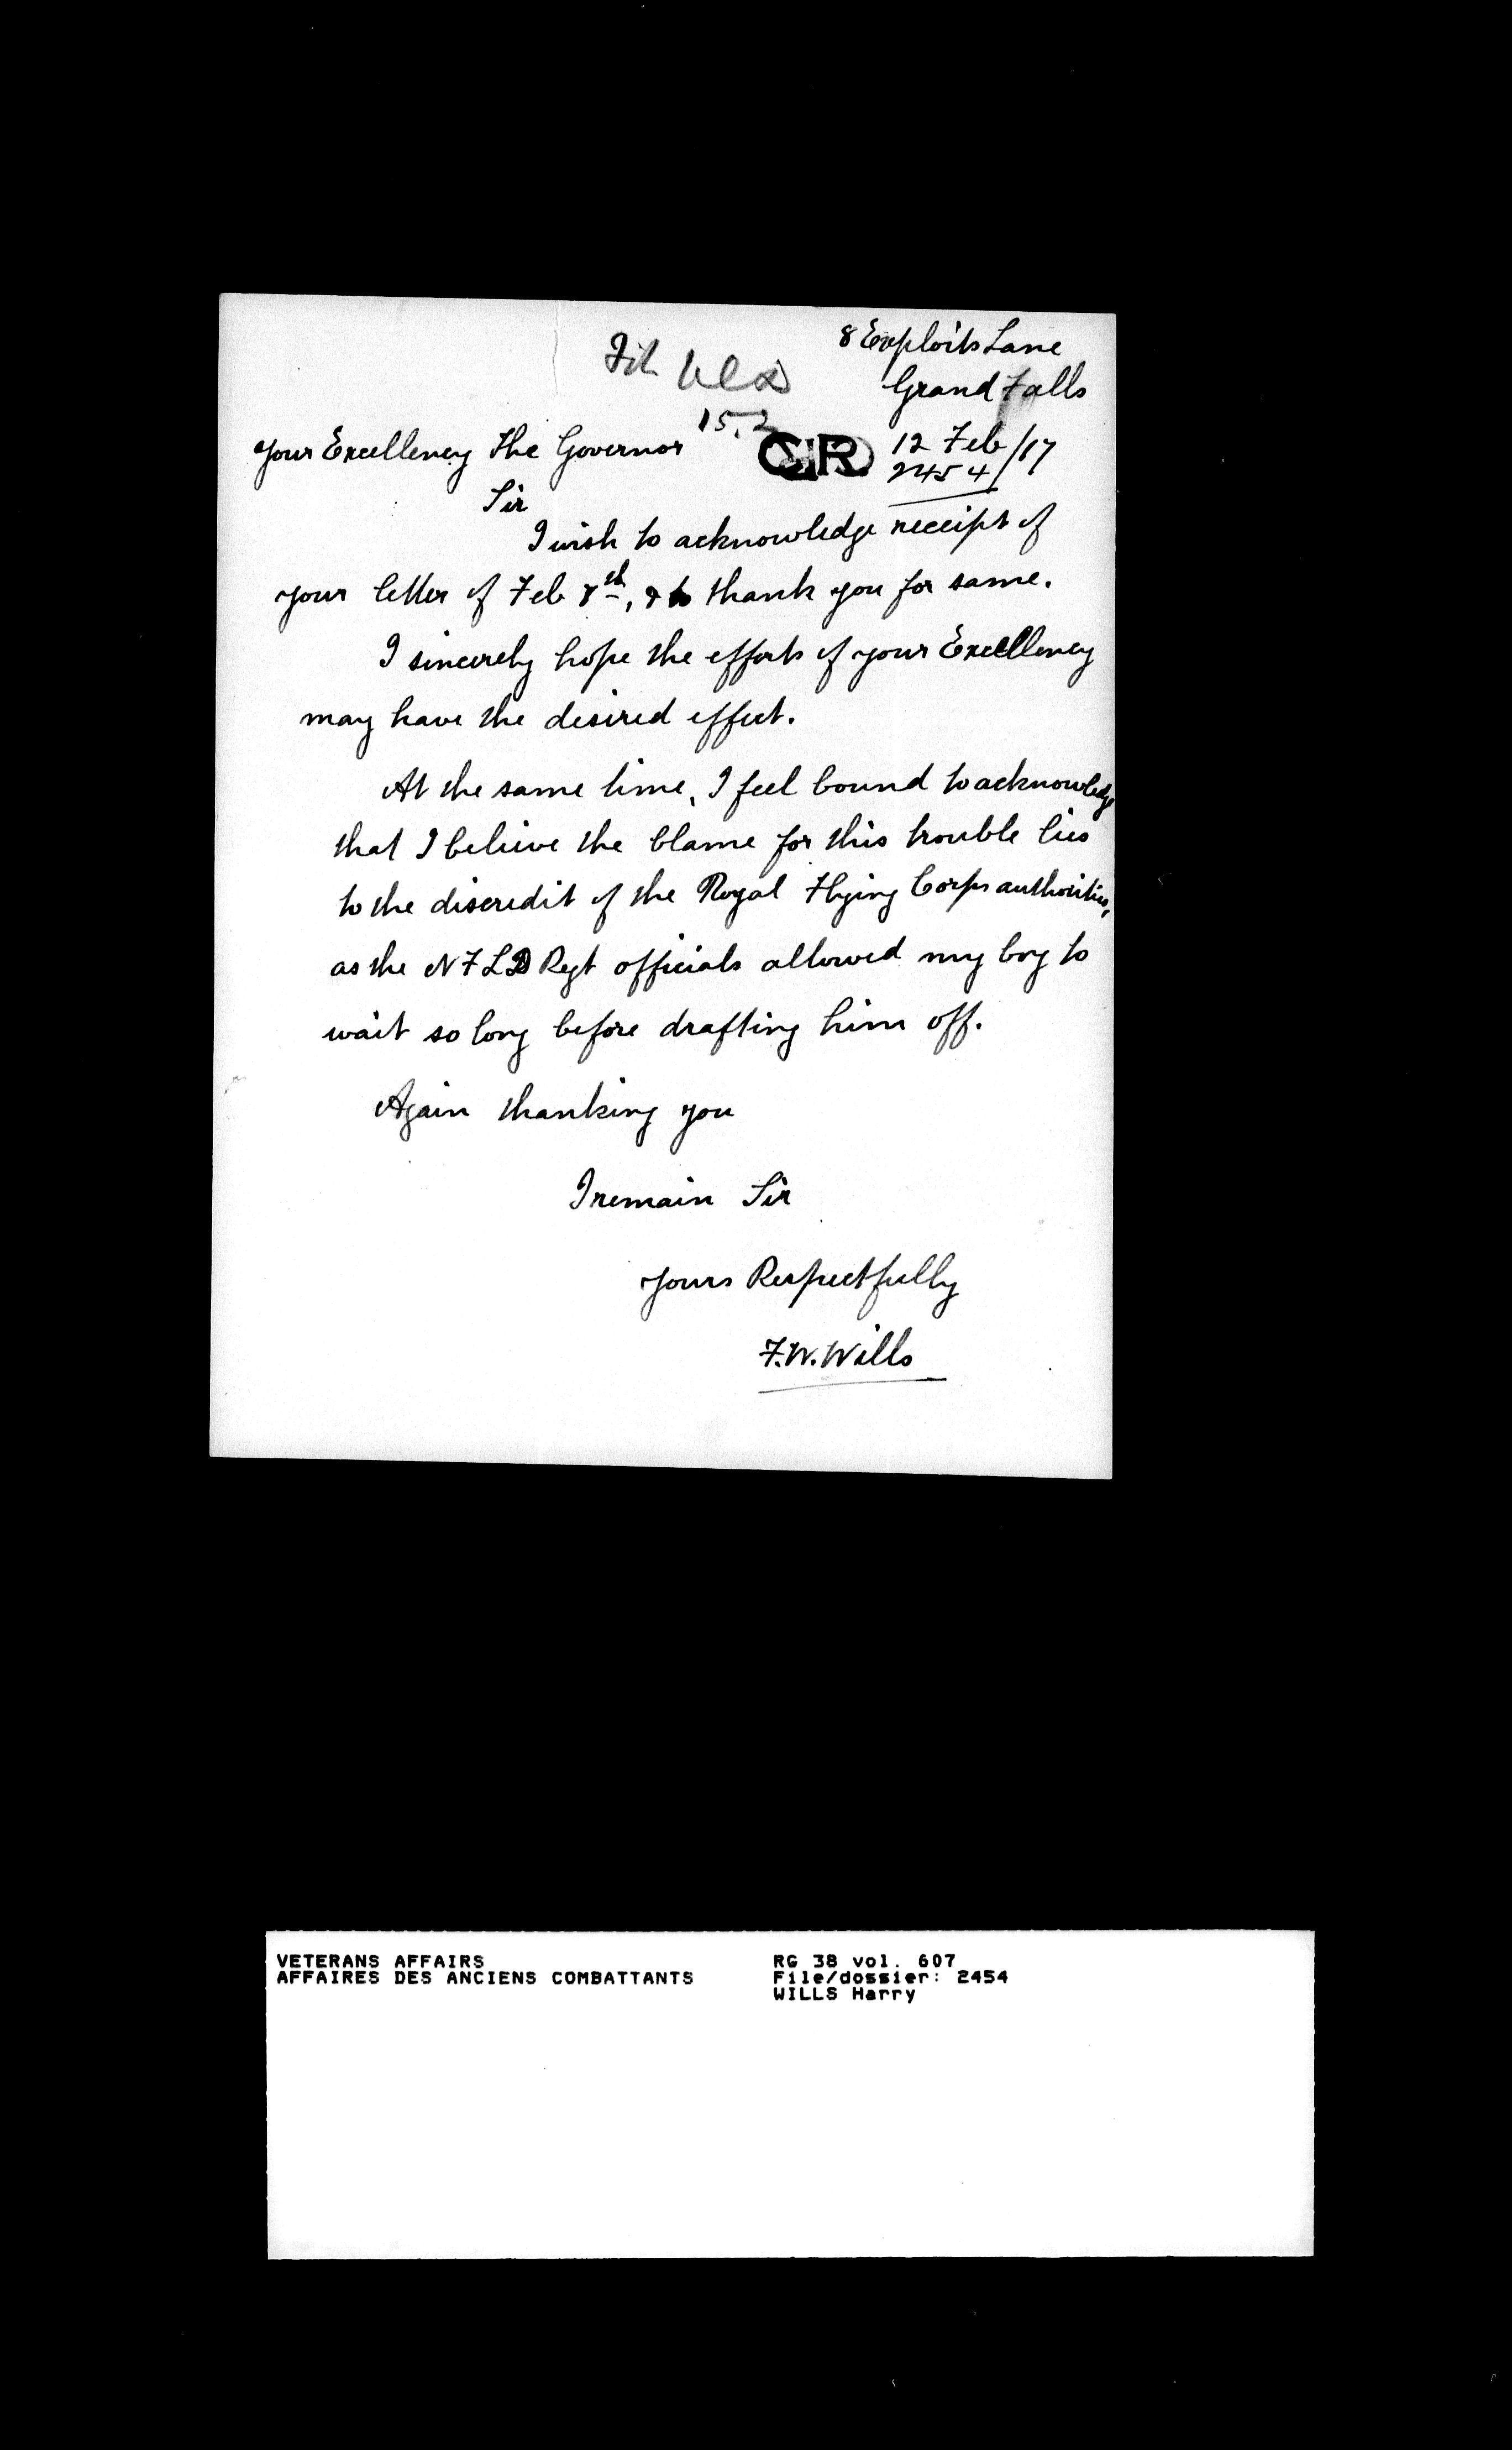 8 Exploits Lane
Grand Falls
15.2
12 Feb/17
CR 2454
Your Excellency the Governor
Sir
I wish to acknowledge receipt of
your letter of Feb 8th, & to thank you for same.
I sincerely hope the efforts of your Excellency
may have the desired effect.
At the same time, I feel bound to acknowledge
that I believe the blame for this trouble lies
to the discredit of the Royal Flying Corps authorities,
as the NFLD Regt officials allowed my boy to
wait so long before drafting him off.
Again thanking you
I remain Sir
Yours Respectfully
F.W. Wills
VETERANS AFFAIRS
AFFAIRES DES ANCIENS COMBATTANTS
RG 38 vol. 607
File/dossier: 2454
WILLS Harry